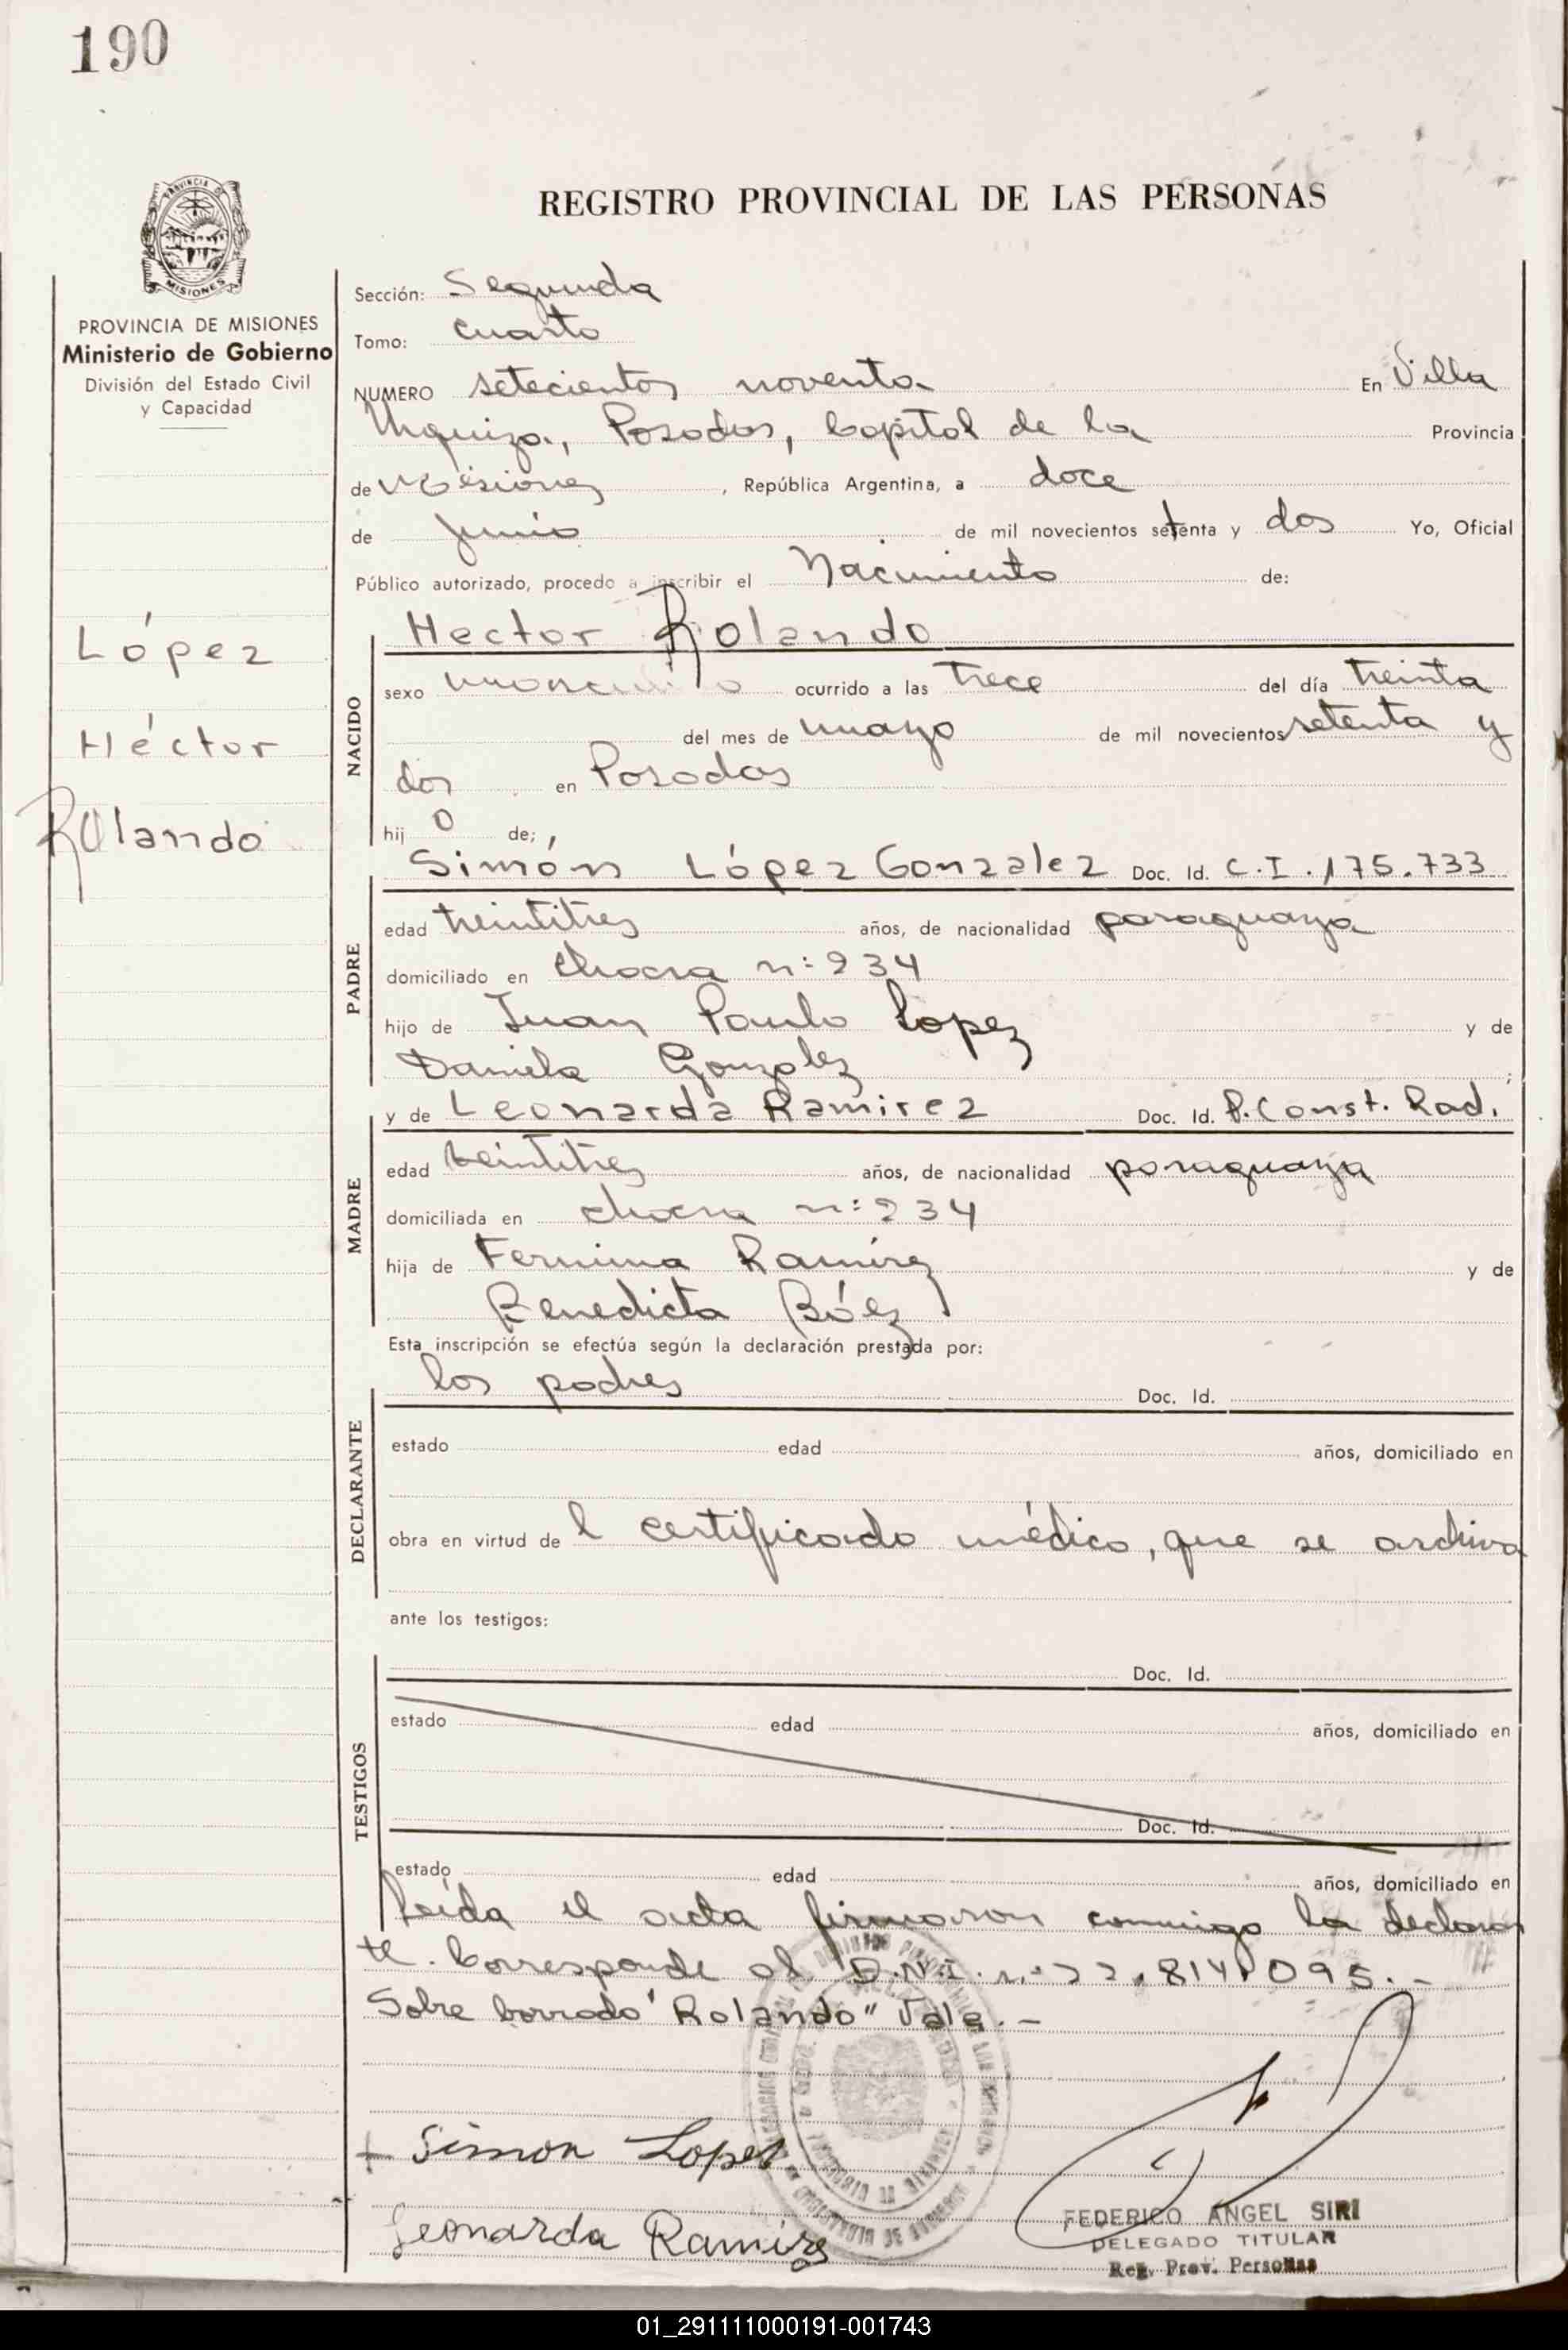 190
REGISTRO PROVINCIAL DE LAS PERSONAS
PROVINCIA DE MISIONES
Ministerio de Gobierno
División del Estado Civil
y Capacidad
López
Héctor
Rolando
Sección: Segunda
Tomo: cuarto
NUMERO setecientos noventa En Villa
Urquiza, Posadas, Capital de la Provincia
de Misiones, República Argentina, a doce
de junio de mil novecientos setenta y dos Yo, Oficial
Público autorizado, procedo a inscribir el Nacimiento de:
NACIDO
Hector Rolando
sexo masculino ocurrido a las trece del día treinta
del mes de mayo de mil novecientos setenta y
dos en Posadas
hij o de;
PADRE
Simón López Gonzalez Doc. Id. C.I. 175.733
edad treintitres años, de nacionalidad paraguaya
domiciliado en chacra n: 234
hijo de Juan Paulo Lopez y de
Daniela Gonzalez;
MADRE
y de Leonarda Ramirez Doc. Id. P. Const. Rad.
edad veintitres años, de nacionalidad paraguaya
domiciliada en chacra n: 234
hija de Fermina Ramírez y de
Benedicta Báez
Esta inscripción se efectúa según la declaración prestada por:
DECLARANTE
los padres Doc. Id.
estado edad años, domiciliado en
obra en virtud de l certificado médico, que se archiva
ante los testigos:
TESTIGOS
Doc. Id.
estado edad años, domiciliado en
Doc. Id.
estado edad años, domiciliado en
leída el acta firmaron conmigo la declaran
te. Corresponde al D.N.I. n: 22.814.095.-
Sobre borrado "Rolando" Vale.-
Simon Lopez
Leonarda Ramírez
FEDERICO ANGEL SIRI
DELEGADO TITULAR
Reg. Prov. Personas
01_291111000191-001743